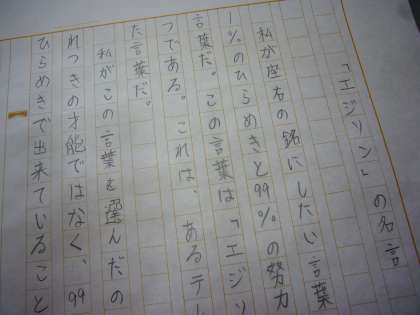 「エジソン」の名言
私が座右の銘にしたい言葉
1%のひらめきと99%の努力
言葉だ。この言葉は「エジソ
つである。これは、あるテレ
た言葉だ。
私がこの言葉を選んだの
れつきの才能ではなく、99
ひらめきで出来ていること